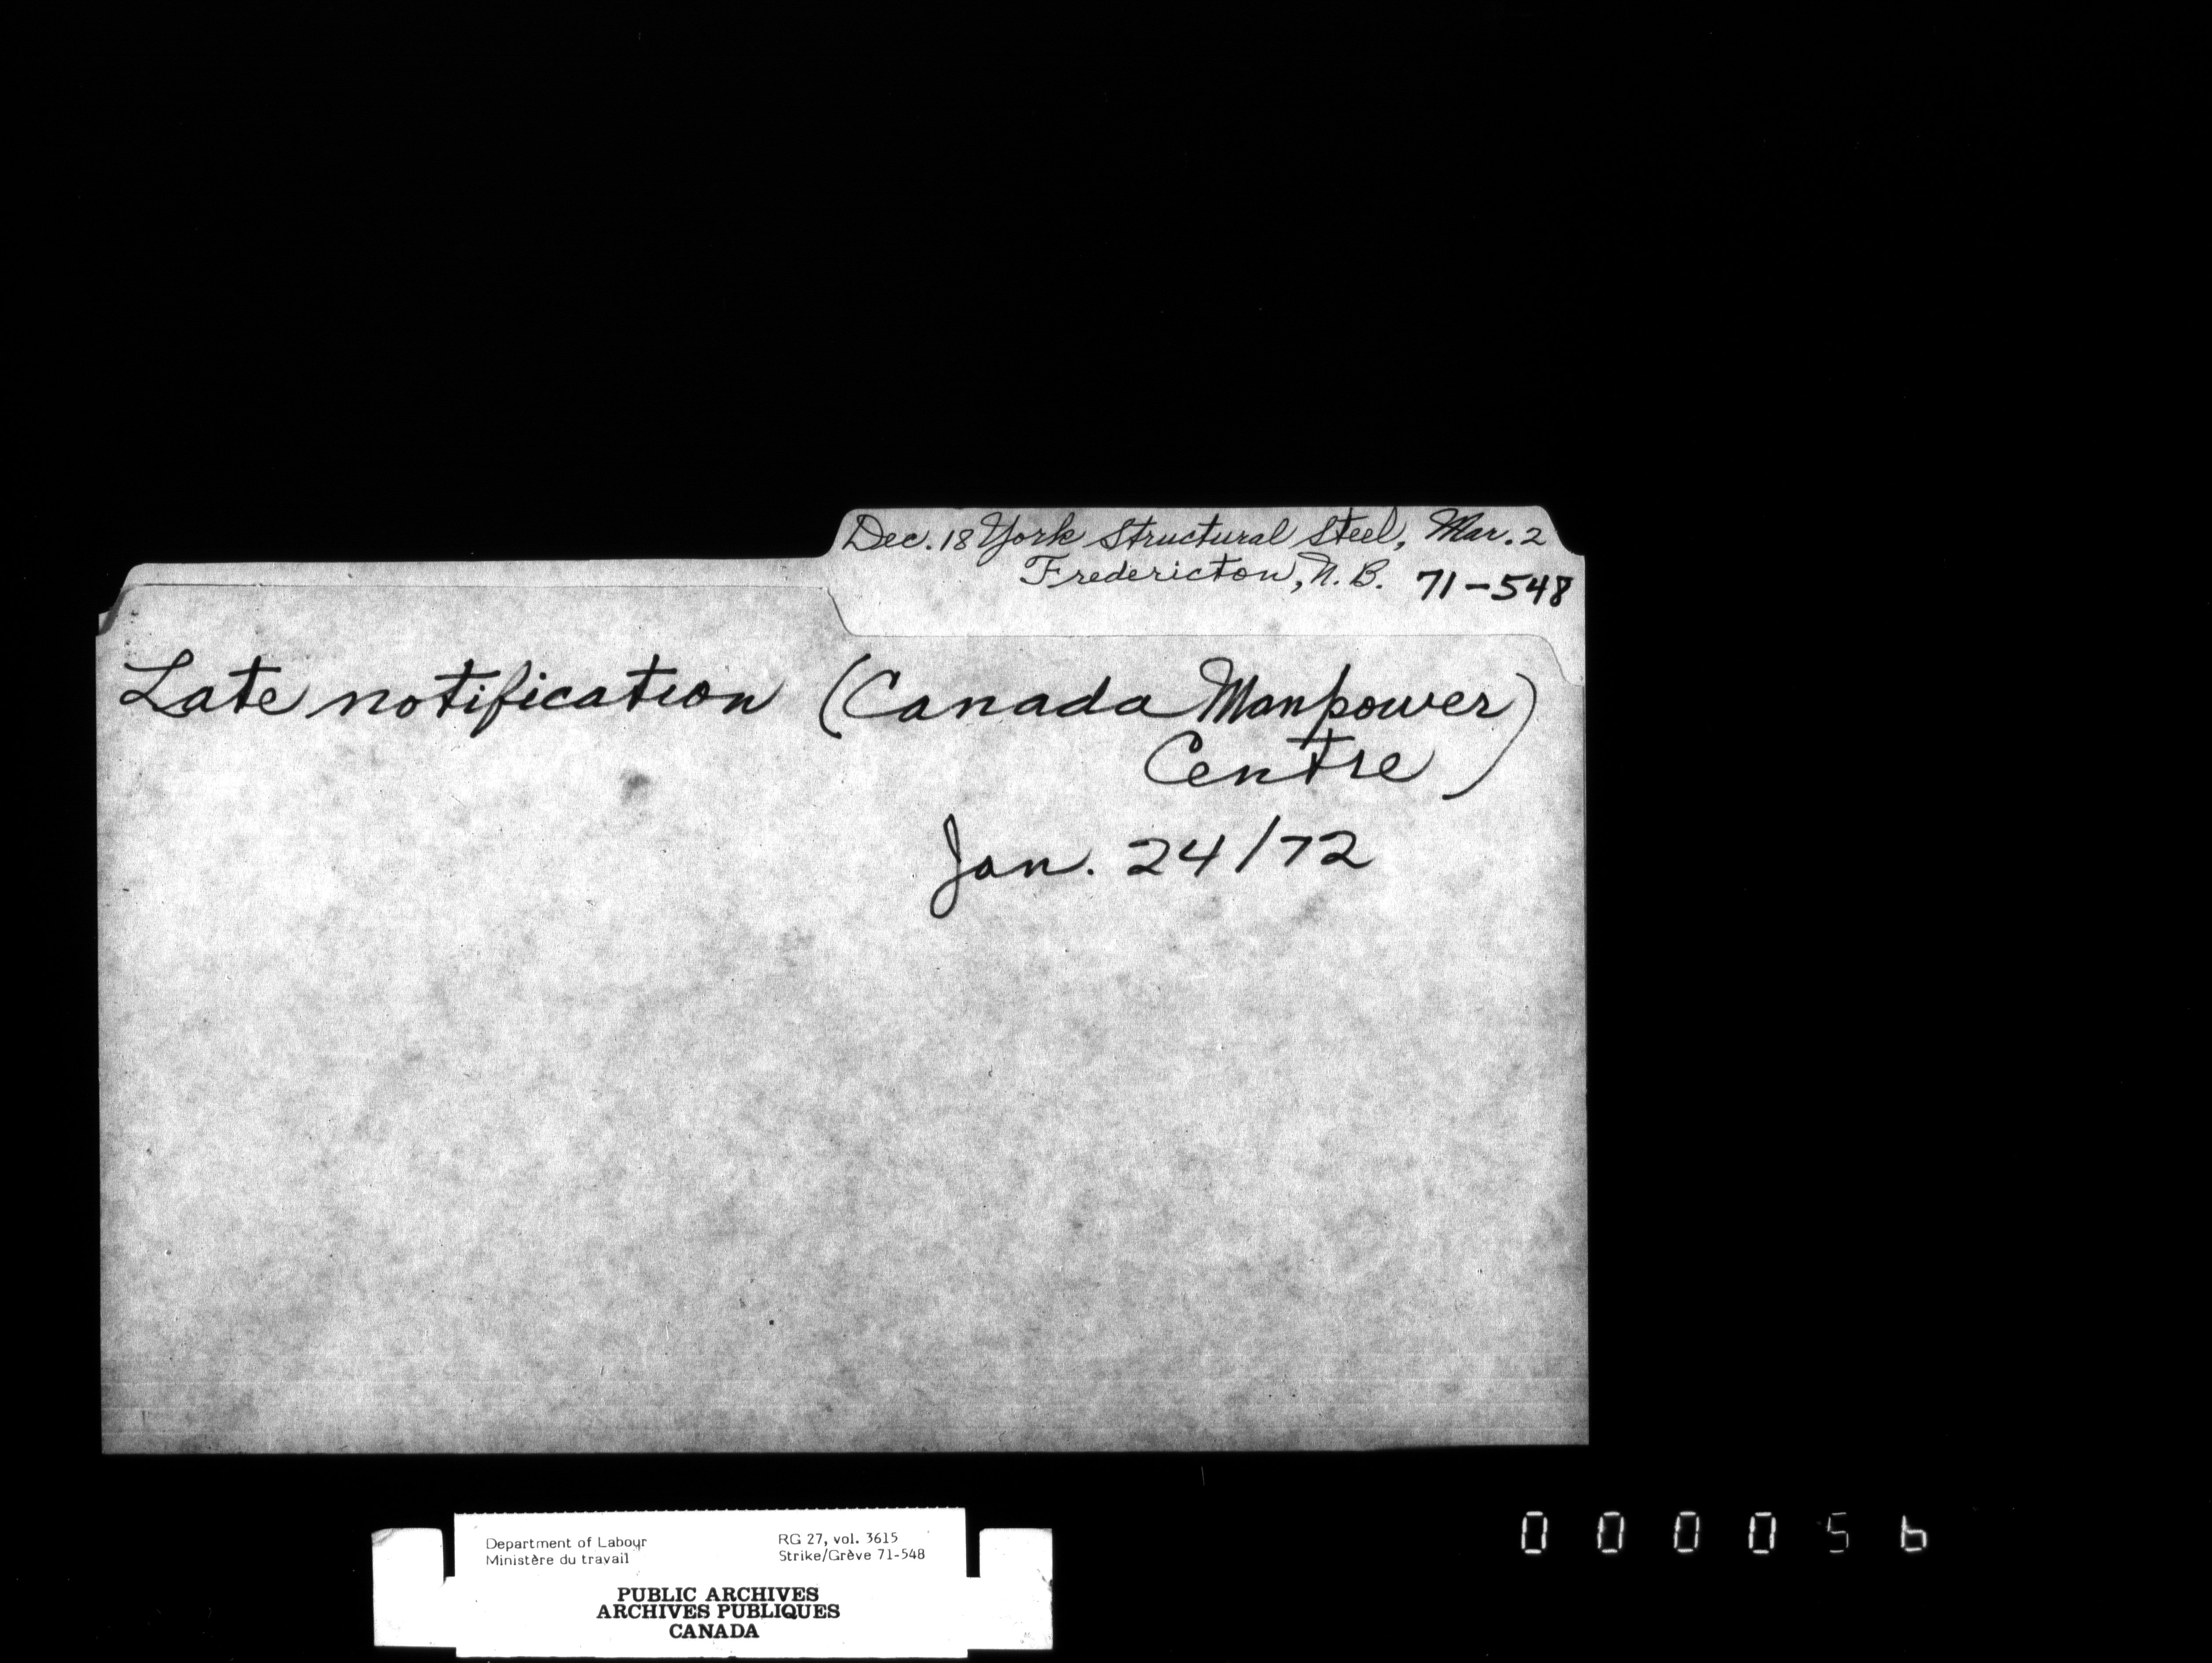 Dec. 18 York Structural Steel, Mar. 2
Fredericton, N.B. 71-548
Late notification (Canada Manpower
Centre)
Jan. 24/72
Department of Labour RG 27, vol. 3615
Ministère du travail Strike/Grève 71-548
PUBLIC ARCHIVES
ARCHIVES PUBLIQUES
CANADA
000056